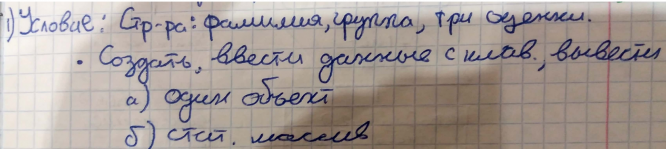 1) Условие: Стр-ра: фамилия, группа, три оценки.
• Создать, ввести данные с клав., вывести
а) один объект
б) стат. массив